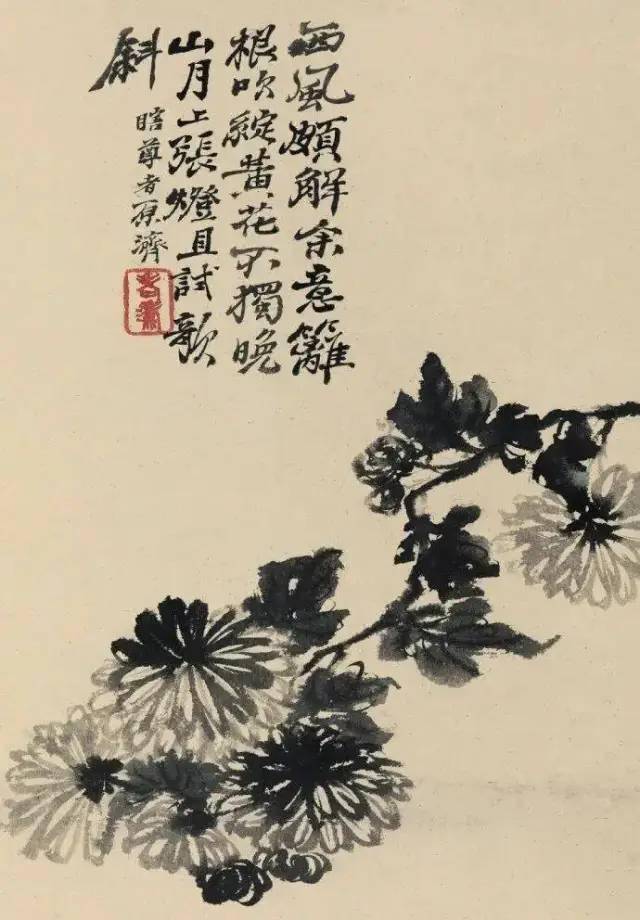 西風頗解余意籬
根吹綻黃花不獨晚
山月上張燈且試歌
斜
瞎尊者原濟